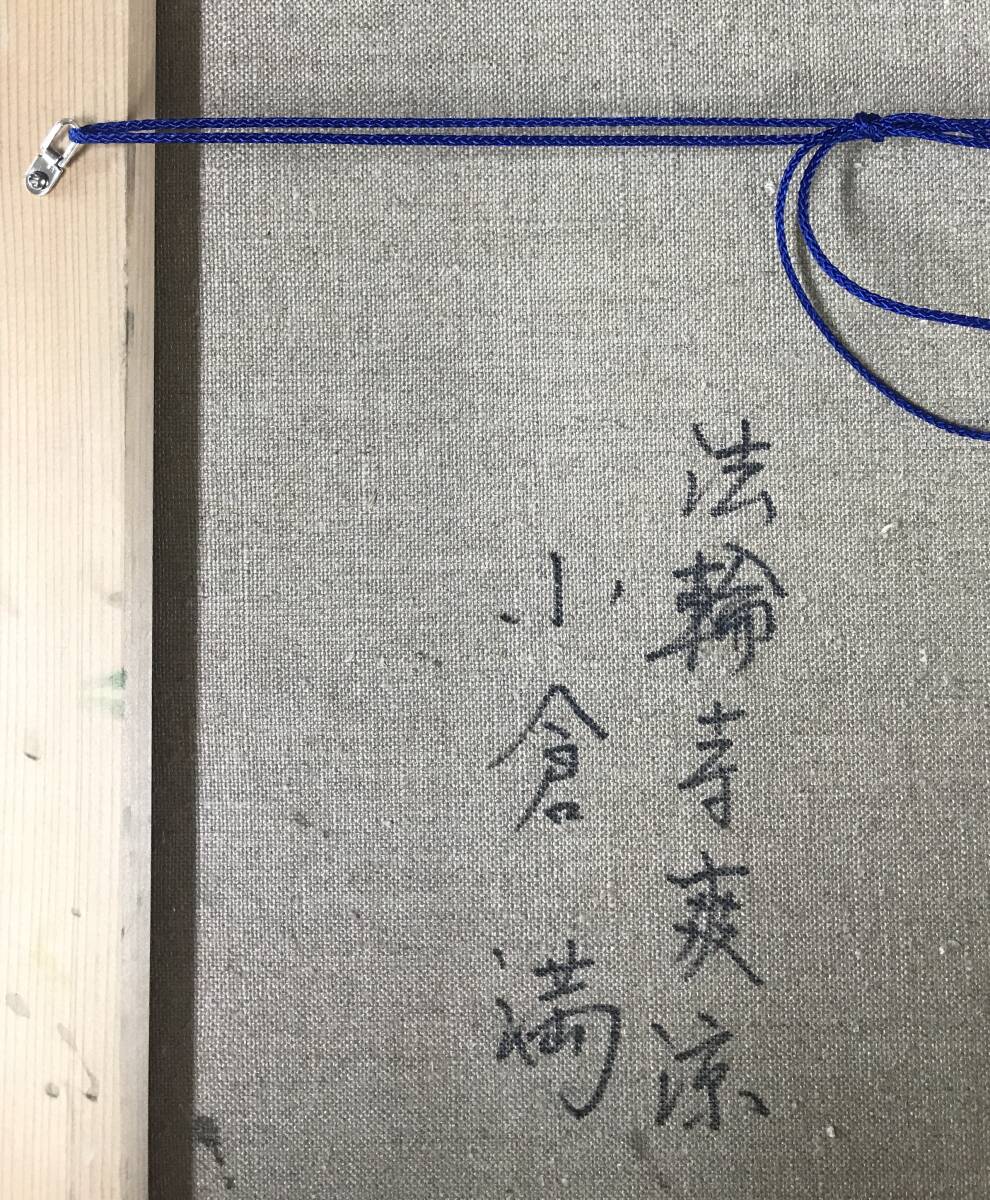 法輪寺爽涼
小倉満